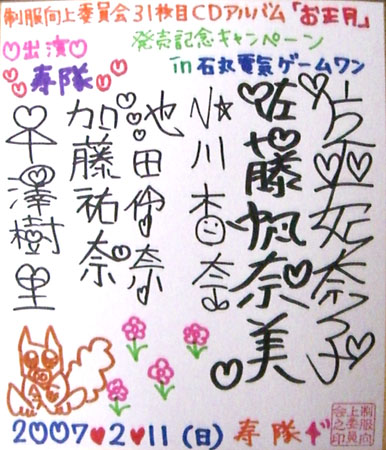 制服向上委員会31枚目CDアルバム「お正月」
発売記念キャンペーン
♡出演♡
in 石丸電氣ゲームワン
寿隊
奈子
佐藤帆奈美
小川杏奈
池田伶奈
加藤祐奈
平澤樹里
2007♥2♥11(日)
寿隊
制服向上委員会之印